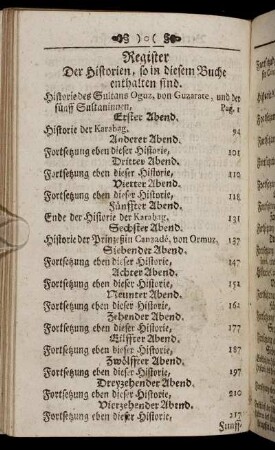 )o(
Register
Der Historien, so in diesem Buche
enthalten sind.
Historie des Sultans Oguz, von Guzarate, und der
fünff Sultaninnen, Pag. 1
Erster Abend.
Historie der Karabag, 94
Anderer Abend.
Fortsetzung eben dieser Historie, 101
Dritter Abend.
Fortsetzung eben dieser Historie, 110
Vierter Abend.
Fortsetzung eben dieser Historie, 118
Fünffter Abend.
Ende der Historie der Karabag, 131
Sechster Abend.
Historie der Prinzeßin Canzadé, von Ormuz, 137
Siebender Abend.
Fortsetzung eben dieser Historie, 147
Achter Abend.
Fortsetzung eben dieser Historie, 151
Neunter Abend.
Fortsetzung eben dieser Historie, 162
Zehender Abend.
Fortsetzung eben dieser Historie, 177
Eilffter Abend.
Fortsetzung eben dieser Historie, 187
Zwölffter Abend.
Fortsetzung eben dieser Historie, 197
Dreyzehender Abend.
Fortsetzung eben dieser Historie, 210
Vierzehender Abend.
Fortsetzung eben dieser Historie, 217
Funff-